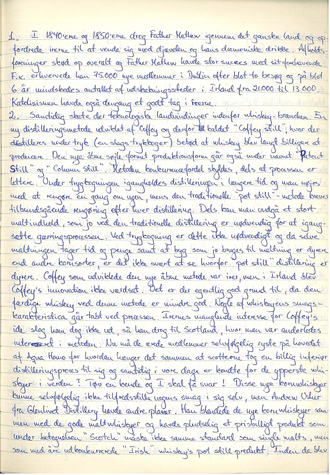 1. I 1840'erne og 1850'erne drog Father Mathew igennem det ganske land og op-
fordrede irerne til at vende sig mod djævelen og hans dæmoniske drikke. Afholds-
foreninger skød op overalt og Father Mathew havde stor succes med sit forehavende.
F.x. erhvervede han 75.000 nye medlemmer i Dublin efter blot to besøg og på blot
6 år mindskedes antallet af udskænkningssteder i Irland fra 21.000 til 13.000.
Katolicismen havde også dengang et godt tag i irerne.
2. Samtidig skete der teknologiske landvindinger indenfor whiskey-branchen. En
ny destilleringsmetode udviklet af Coffey og derfor kaldet "Coffey still", hvor der
destilleres under tryk (en slags trykkoger) betød at whiskey blev langt billigere at
producere. Den nye åbne søjle-formet produktionsform går også under navnet "Patent
Still" og "Column still". Metodens konkurrencefordel skyldes, dels at processen er
lettere. Under trykkogningen igangholdes destilleringen i længere tid og man nøjes
med at rengøre en gang om ugen, mens den traditionelle "pot still"-metode kræves
tilbundsgående rengøring efter hver destillering. Dels kan man undgå et stort
maltindhold, som jo ved den traditionelle destillering er nødvendig for at igang-
sætte gæringsprocessen. Ved trykkogning er dette ikke nødvendigt og da selve
maltningen tager tid og penge, samt at byg som jo bruges til maltning er dyrere
end andre kornsorter, er det ikke svært at se hvorfor "pot still" destillering er
dyrere. Coffey som udviklede den nye åbne metode var irer, men i Irland blev
Coffey's innovation ikke værdsat. Det er der egentlig god grund til, da den
færdige whiskey ved denne metode er mindre god. Nogle af whiskeyens smags-
karakteristica går tabt ved processen. Irernes manglende interesse for Coffey's
ide slog ham dog ikke ud, så han drog til Scotland, hvor man var anderledes
interesseret i metoden. Nu må de ærede medlemmer selvfølgelig ryste på hovedet
af
for hvordan hænger det sammen at skotterne tog en billig inferiør
distilleringsproces til sig og samtidig i vore dage er kendte for de ypperste whi-
skyer i verden? Tøv en kende og I skal få svar! Disse nye kornwhiskyer
kunne selvfølgelig ikke tilfredsstille ungens smag i sig selv, men Andrew Usher
fra Glenlivet Distillery havde andre planer. Han blandede de nye kornwhiskyer sam-
men med de gode maltwhiskyer og havde pludselig et prisbilligt produkt som
under betegnelsen "Scotch" måske ikke samme standard som single malts, men
som med de udkonkurrerede "Irish" whiskey's pot still produkt. Inden da blev